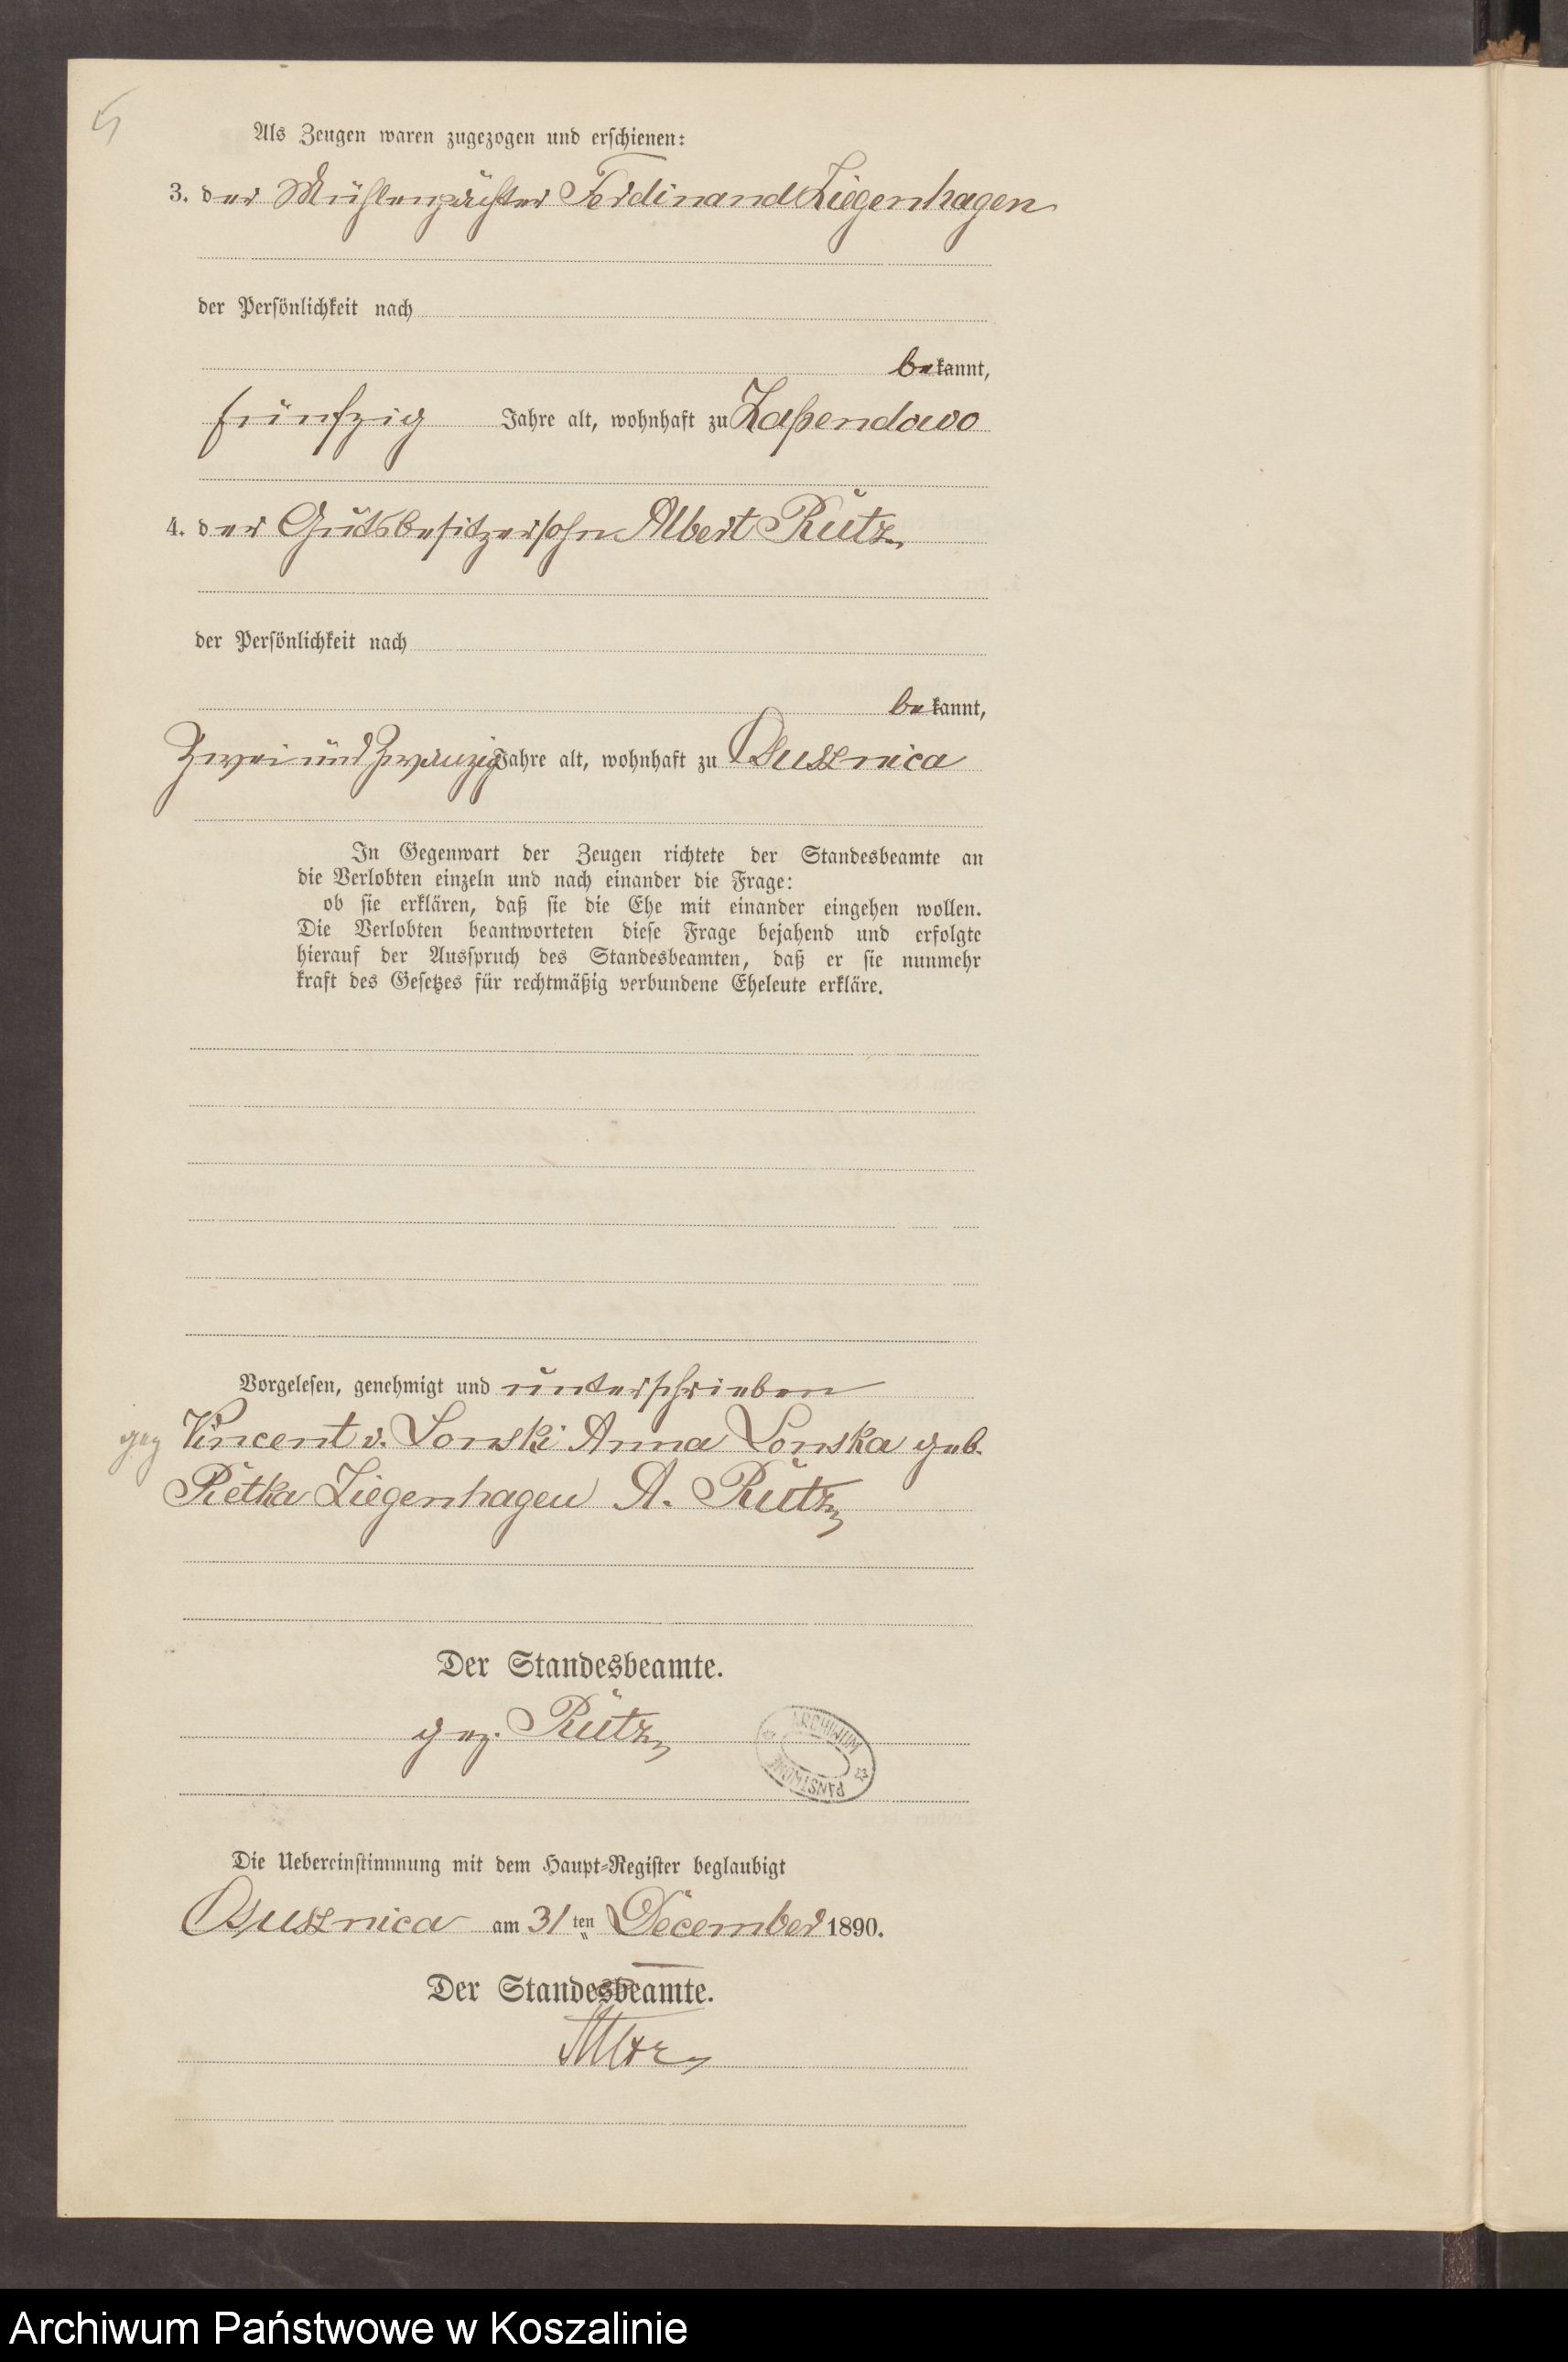 Als Zeugen waren zugezogen und erschienen:
3. der Mühlenpächter Ferdinand Ziegenhagen
der Persönlichkeit nach
bekannt,
fünfzig Jahre alt, wohnhaft zu Zapendowo
4. der Gutsbesitzersohn Albert Rütz
der Persönlichkeit nach
bekannt,
Zwei und Zwanzig Jahre alt, wohnhaft zu Osusznica
In Gegenwart der Zeugen richtete der Standesbeamte an
die Verlobten einzeln und nach einander die Frage:
ob sie erklären, daß sie die Ehe mit einander eingehen wollen.
Die Verlobten beantworteten diese Frage bejahend und erfolgte
hierauf der Ausspruch des Standesbeamten, daß er sie nunmehr
kraft des Gesetzes für rechtmäßig verbundene Eheleute erkläre.
Vorgelesen, genehmigt und unterschrieben
gez Vincent v. Lonski Anna Lonska geb.
Rietka Ziegenhagen A. Rütz
Der Standesbeamte.
gez. Rütz
ARCHIWUM
PAŃSTWOWE
Die Uebereinstimmung mit dem Haupt-Register beglaubigt
Osusznica am 31 ten December 1890.
Der Standesbeamte.
Archiwum Państwowe w Koszalinie